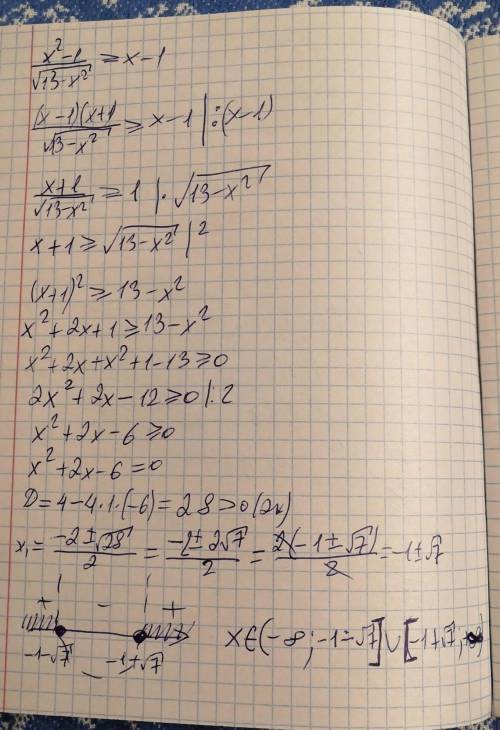 (x²-1)/√(13-x²) ≥ x-1
((x-1)(x+1))/√(13-x²) ≥ x-1 | :(x-1)
(x+1)/√(13-x²) ≥ 1 | ·√(13-x²)
x+1 ≥ √(13-x²) |²
(x+1)² ≥ 13-x²
x²+2x+1 ≥ 13-x²
x²+2x+x²+1-13 ≥ 0
2x²+2x-12 ≥ 0 |:2
x²+2x-6 ≥ 0
x²+2x-6 = 0
D = 4-4·1·(-6) = 28 > 0 (2x)
x₁ = (-2±√28)/2 = (-2±2√7)/2 = (2(-1±√7))/2 = -1±√7
+ - +
-1-√7 -1+√7 x∈(-∞; -1-√7]∪[-1+√7; +∞)
-